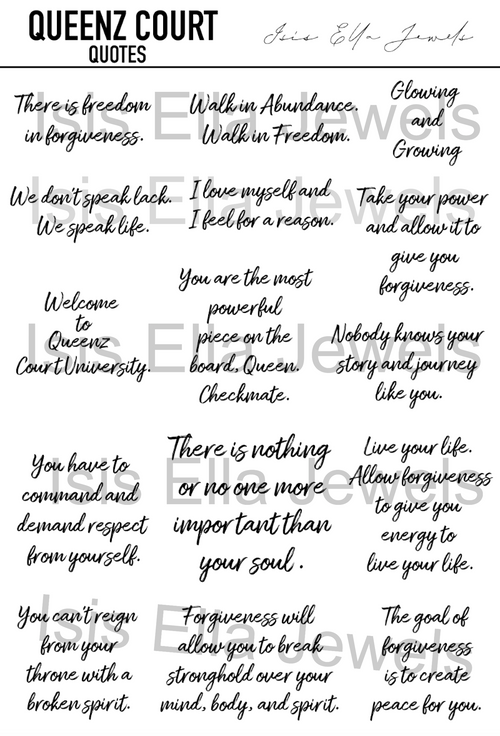 QUEENZ COURT
QUOTES
Isis Ella Jewels
There is freedom
in forgiveness.
Walk in Abundance.
Walk in Freedom.
Glowing
and
Growing
Isis Ella Jewels
We don't speak lack.
We speak life.
I love myself and
I feel for a reason.
Take your power
and allow it to
give you
forgiveness.
Isis Ella Jewels
Welcome
to
Queenz
Court University.
You are the most
powerful
piece on the
board, Queen.
Checkmate.
Nobody knows your
story and journey
like you.
Isis Ella Jewels
You have to
command and
demand respect
from yourself.
There is nothing
or no one more
important than
your soul .
Live your life.
Allow forgiveness
to give you
energy to
live your life.
Isis Ella Jewels
You can't reign
from your
throne with a
broken spirit.
Forgiveness will
allow you to break
stronghold over your
mind, body, and spirit.
The goal of
forgiveness
is to create
peace for you.
Isis Ella Jewels